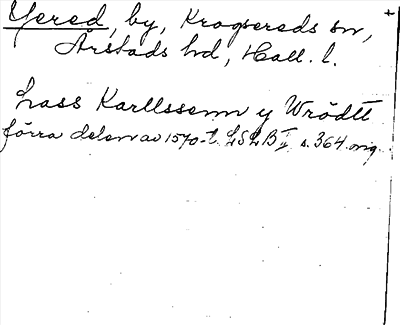 Yered, by, Krogsereds sn,
Årstads hd, Hall. l.
Lass Karllssenn y Wrödtt
förra delen av 1570-t. LSLB II s. 364. orig.